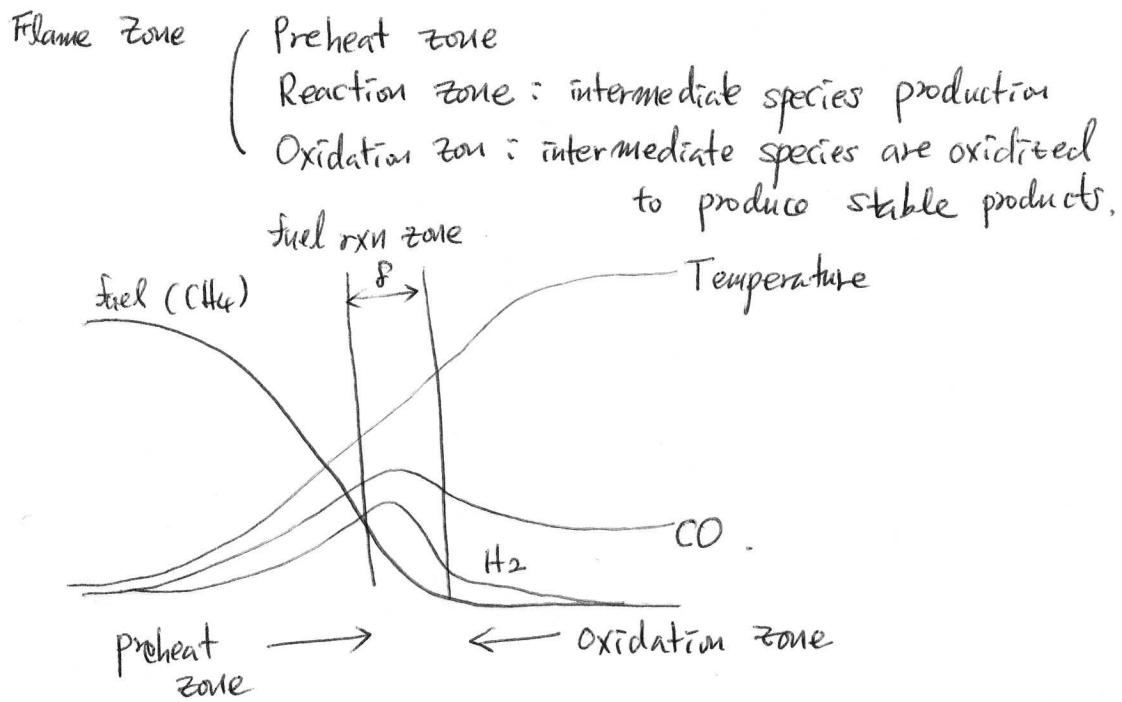 Flame Zone
Preheat zone
Reaction zone : intermediate species production
Oxidation zon : intermediate species are oxidized
to produce stable products.
fuel rxn zone
δ
fuel (CH4)
Temperature
CO
H2
Preheat
zone
Oxidation zone